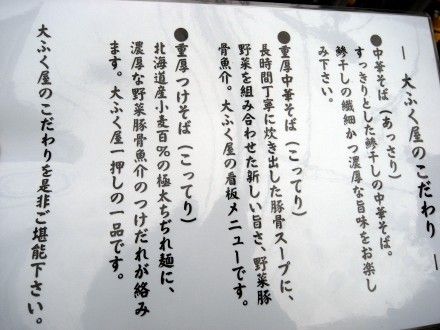 ― 大ふく屋のこだわり ―
●中華そば（あっさり）
すっきりとした鯵干しの中華そば。
鯵干しの繊細かつ濃厚な旨味をお楽し
み下さい。
●重厚中華そば（こってり）
長時間丁寧に炊き出した豚骨スープに、
野菜を組み合わせた新しい旨さ、野菜豚
骨魚介。大ふく屋の看板メニューです。
●重厚つけそば（こってり）
北海道産小麦百％の極太ちぢれ麺に、
濃厚な野菜豚骨魚介のつけだれが絡み
ます。大ふく屋一押しの一品です。
大ふく屋のこだわりを是非ご堪能下さい。